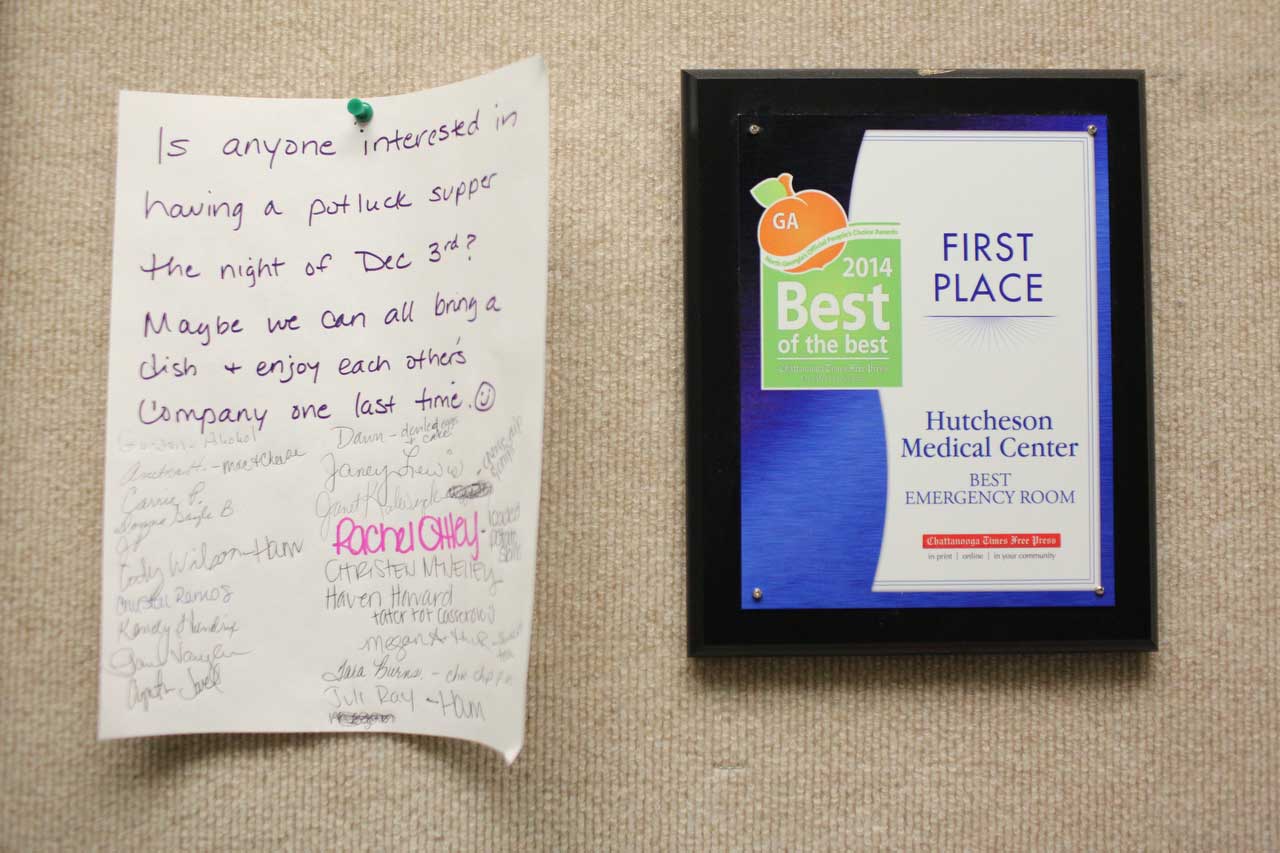 Is anyone interested in
having a potluck supper
the night of Dec 3rd?
Maybe we can all bring a
dish + enjoy each other's
Company one last time. ☺
- Alcohol
- mac + cheese
Carrie P.
Gayle B.
Cody Wilson - Ham
Ramos
Dawn - deviled eggs
+ cake
Janey Lewis
Janet
Rachel Ottley - loaded
potato
CHRISTEN MCNELLEY
Haven Howard
tater tot casserole
Megan
Tara Burns -
Juli Ray - Ham
GA
North Georgia's Official People's Choice Awards
2014
Best
of the best
Chattanooga Times Free Press
FIRST
PLACE
Hutcheson
Medical Center
BEST
EMERGENCY ROOM
Chattanooga Times Free Press
in print | online | in your community